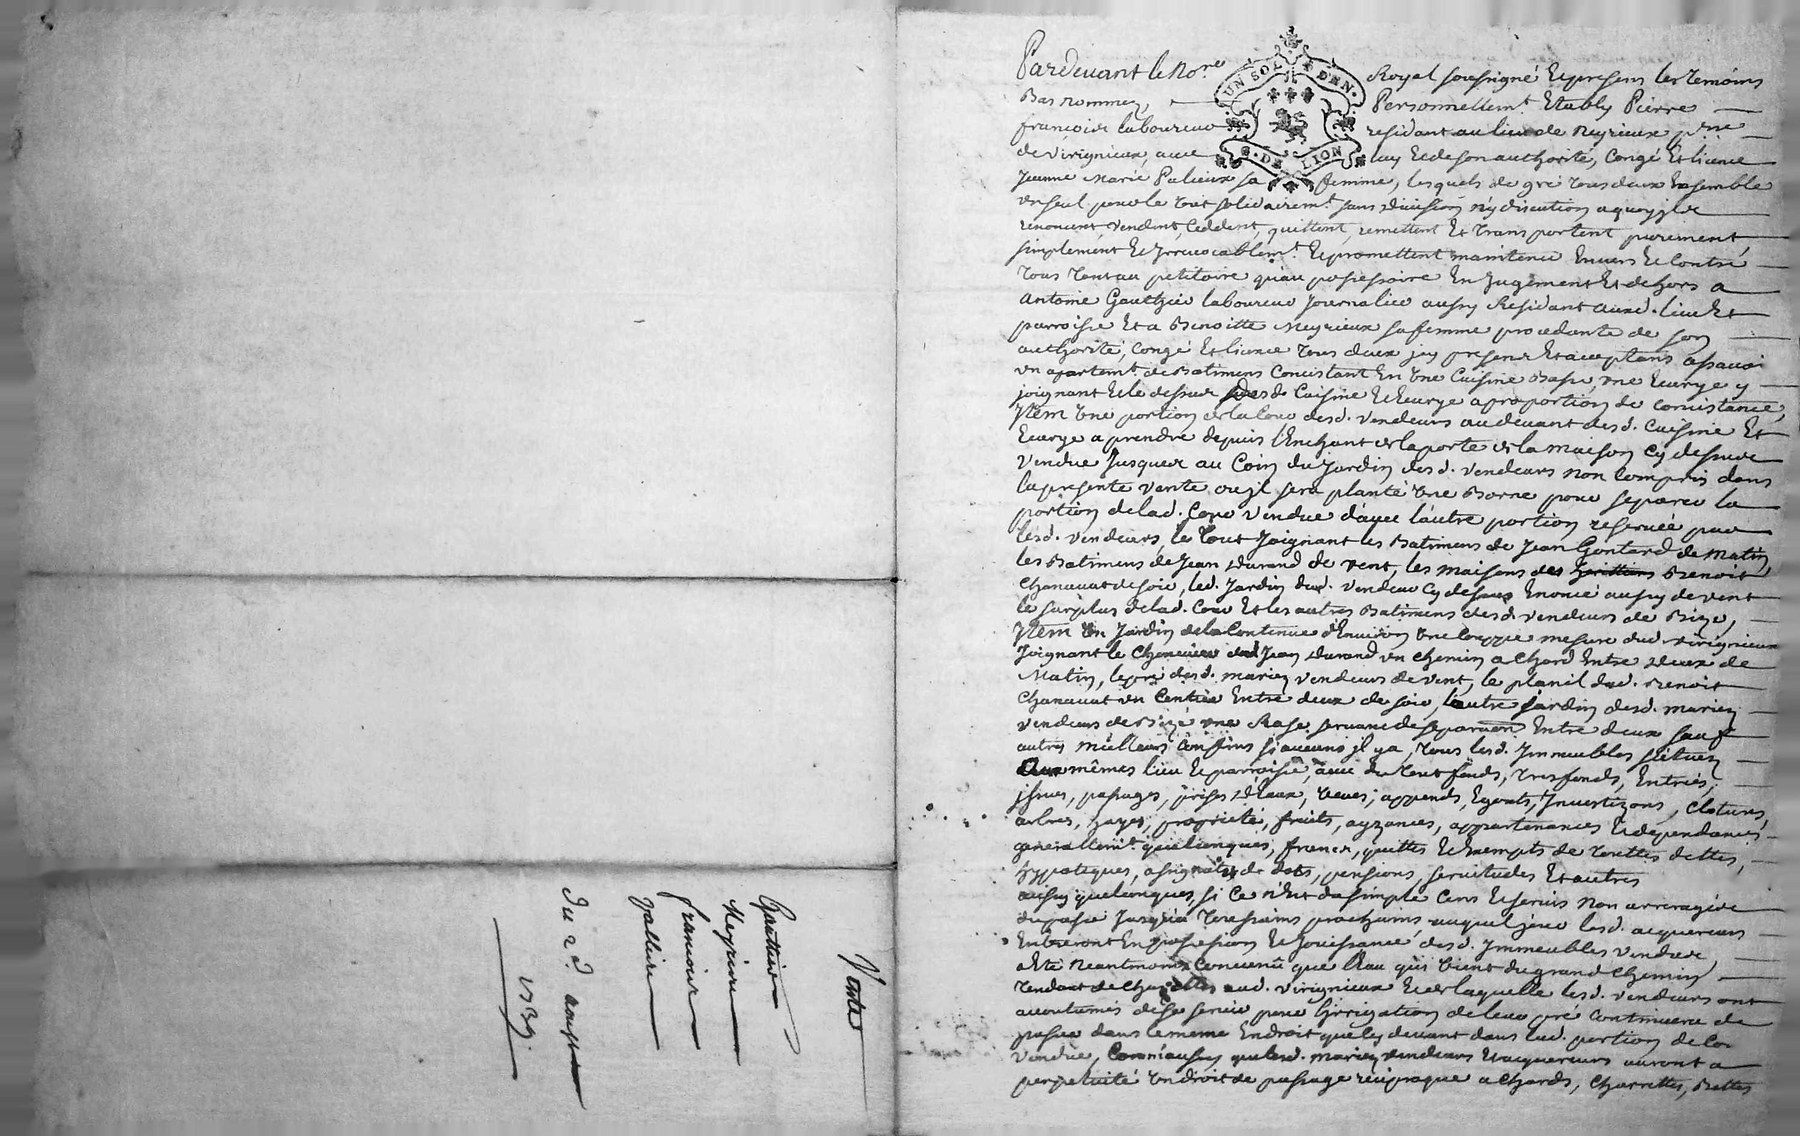 Pardevant le No.re Royal soussigné Et presens les temoins
Bas nommez, Personnellem.t Etably Pierre
francois laboureur residant au lieu de Meyrieux p.sse
de virignieux, avec luy Et de son authorité, Congé Et licence
Jeanne Marie Palieux sa femme, lesquels de gré tous deux Ensemble
un seul pour le tout solidairem.t sans division ny discution a quoy ils
renoncent, vendent, Ceddent, quittent, remettent Et transportent purement
simplement Et Irrevocablem.t Et promettent maintenir Envers Et Contre
Tous tant au petitoire qu'au possessoire En Jugement Et dehors a
Antoine Gauthier laboureur Journalier aussy Residant aud. lieu Et
parroisse Et a Benoitte Meyrieux sa femme procedante de son
authorité, Congé Et licence tous deux jcy presens Et aceptans assavoir
un apartem.t de Batimens Concistant En une Cuisine Basse, une Ecurye y
joignant Et le dessus desd. Cuisine Et Ecurye a proportion de concistance,
Jtem une portion de la Cour desd. vendeurs au devant desd. Cuisine Et
Ecurye a prendre depuis l'Enchant de la porte de la maison Cy dessus
vendue Jusques au Coin du Jardin desd. vendeurs non Compris dans
la presente vente ou jl sera planté une Borne pour separer la
portion de lad. Cour vendue d'avec l'autre portion reservée par
lesd. vendeurs, le tout Joignant les Batimens de Jean Gontard de Matin,
les Batimens de Jean durand de vent, les maisons de Benoit
Chanavat de soir, led. Jardin desd. vendeurs Cy dessus Enoncé aussy de vent
le surplus de lad. Cour Et les autres Batimens desd. vendeurs de Bize,
Jtem Un Jardin de la Contenue d'Environ une Couppée mesure dud. virignieux
Joignant le Chenevier Jean durand un chemin a Chard Entre deux de
Matin, le pré desd. mariez vendeurs de vent, le planil dud. Benoit
Chanavat un Sentier Entre deux de soir, l'autre Jardin desd. mariez
vendeurs de Bize une Rase servant de separation Entre deux sauf
autres meilleurs Confins si aucuns jl y a, tous lesd. Jmmeubles scituez
Aux mêmes lieu Et parroisse, avec du tout fonds, tresfonds, Entrées,
jssues, passages, prises d'Eaux, veues, appends, Egouts, Investizons, Clotures,
arbres, hayes, proprieté, fruits, ayzances, appartenances Et dependances
generallem.t quelconques, francs, quittes Et Exempts de toutes dettes,
hypoteques, assignats de dots, pensions, servitudes Et autres
quelconques, si ce n'Est du simple Cens Et servis Non arreragés
du passé Jusqu'a toussaint prochain, auquel jour lesd. acquereurs
Entreront En possession Et Jouissance desd. Jmmeubles vendus,
a Eté Neantmoins Convenu que l'Eau qui vient du grand chemin
tendant de Chazelles aud. virignieux Et de laquelle lesd. vendeurs ont
accoutumés de se servir pour l'irrigation de leur pré Continuera de
passer dans le meme Endroit que Cy devant dans lad. portion de Cour
vendue, Comme aussy que lesd. mariez vendeurs Et acquereurs auront a
perpetuité Un droit de passage reciproque a Chards, Charrettes, Bettes
Vente
Gautier
Meyrieu
francois
valliere
du 2 d. aoust